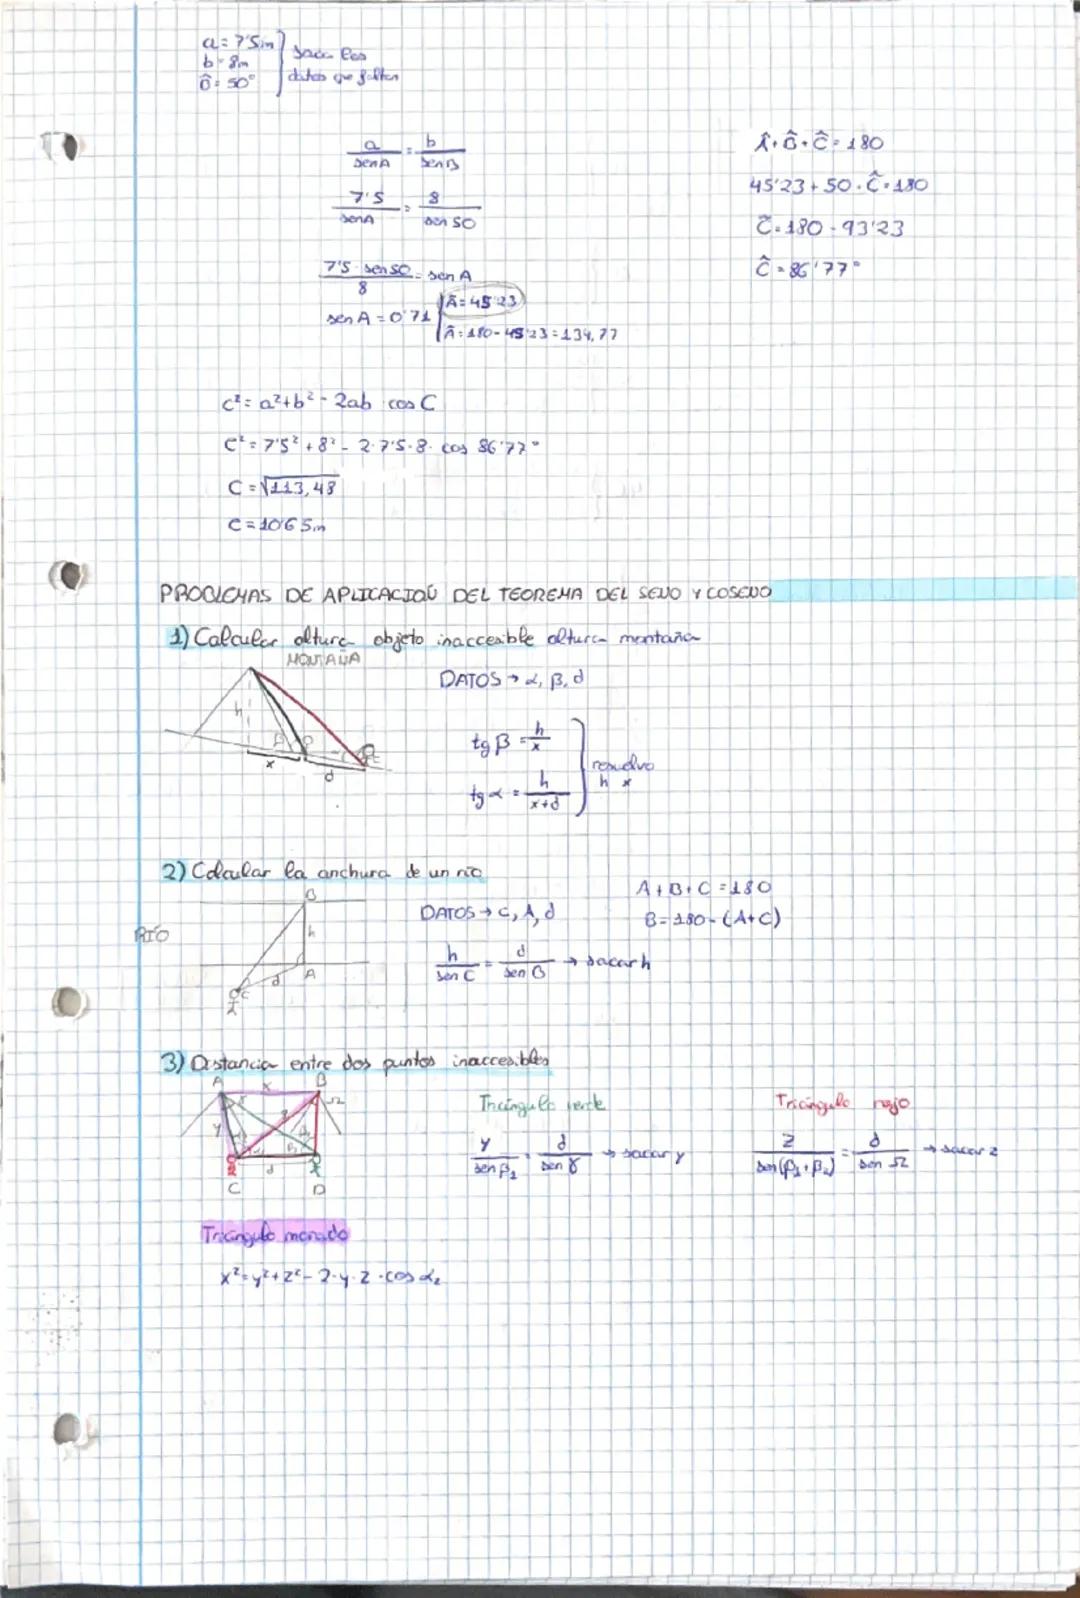 a = 7'5m
b = 8m
B̂ = 50°
saca los
datos que faltan
a/sen A = b/sen B
7'5/sen A = 8/sen 50
7'5 · sen 50/8 = sen A
sen A = 0'71
Â = 45'23
Â = 180 - 45'23 = 134,77
Â + B̂ + Ĉ = 180
45'23 + 50 + Ĉ = 180
Ĉ = 180 - 93'23
Ĉ = 86'77°
c² = a² + b² - 2ab cos C
c² = 7'5² + 8² - 2·7'5·8· cos 86'77°
C = √113,48
C = 10'65m
PROBLEMAS DE APLICACIÓN DEL TEOREMA DEL SENO Y COSENO
1) Calcular altura objeto inaccesible altura montaña
MONTAÑA
h
β P
x
d
DATOS → α, β, d
tg β = h/x
tg α = h/x+d
resuelvo
h x
2) Calcular la anchura de un río
RÍO
B
h
A
d
C
DATOS → C, A, d
A + B + C = 180
B = 180 - (A+C)
h/sen C = d/sen B → sacar h
3) Distancia entre dos puntos inaccesibles
A x B
y z Ω
d
C D
Triángulo verde
y/sen β₁ = d/sen γ → sacar y
Triángulo rojo
z/sen(β₁+β₂) = d/sen Ω → sacar z
Triángulo morado
x² = y² + z² - 2·y·z·cos α₂